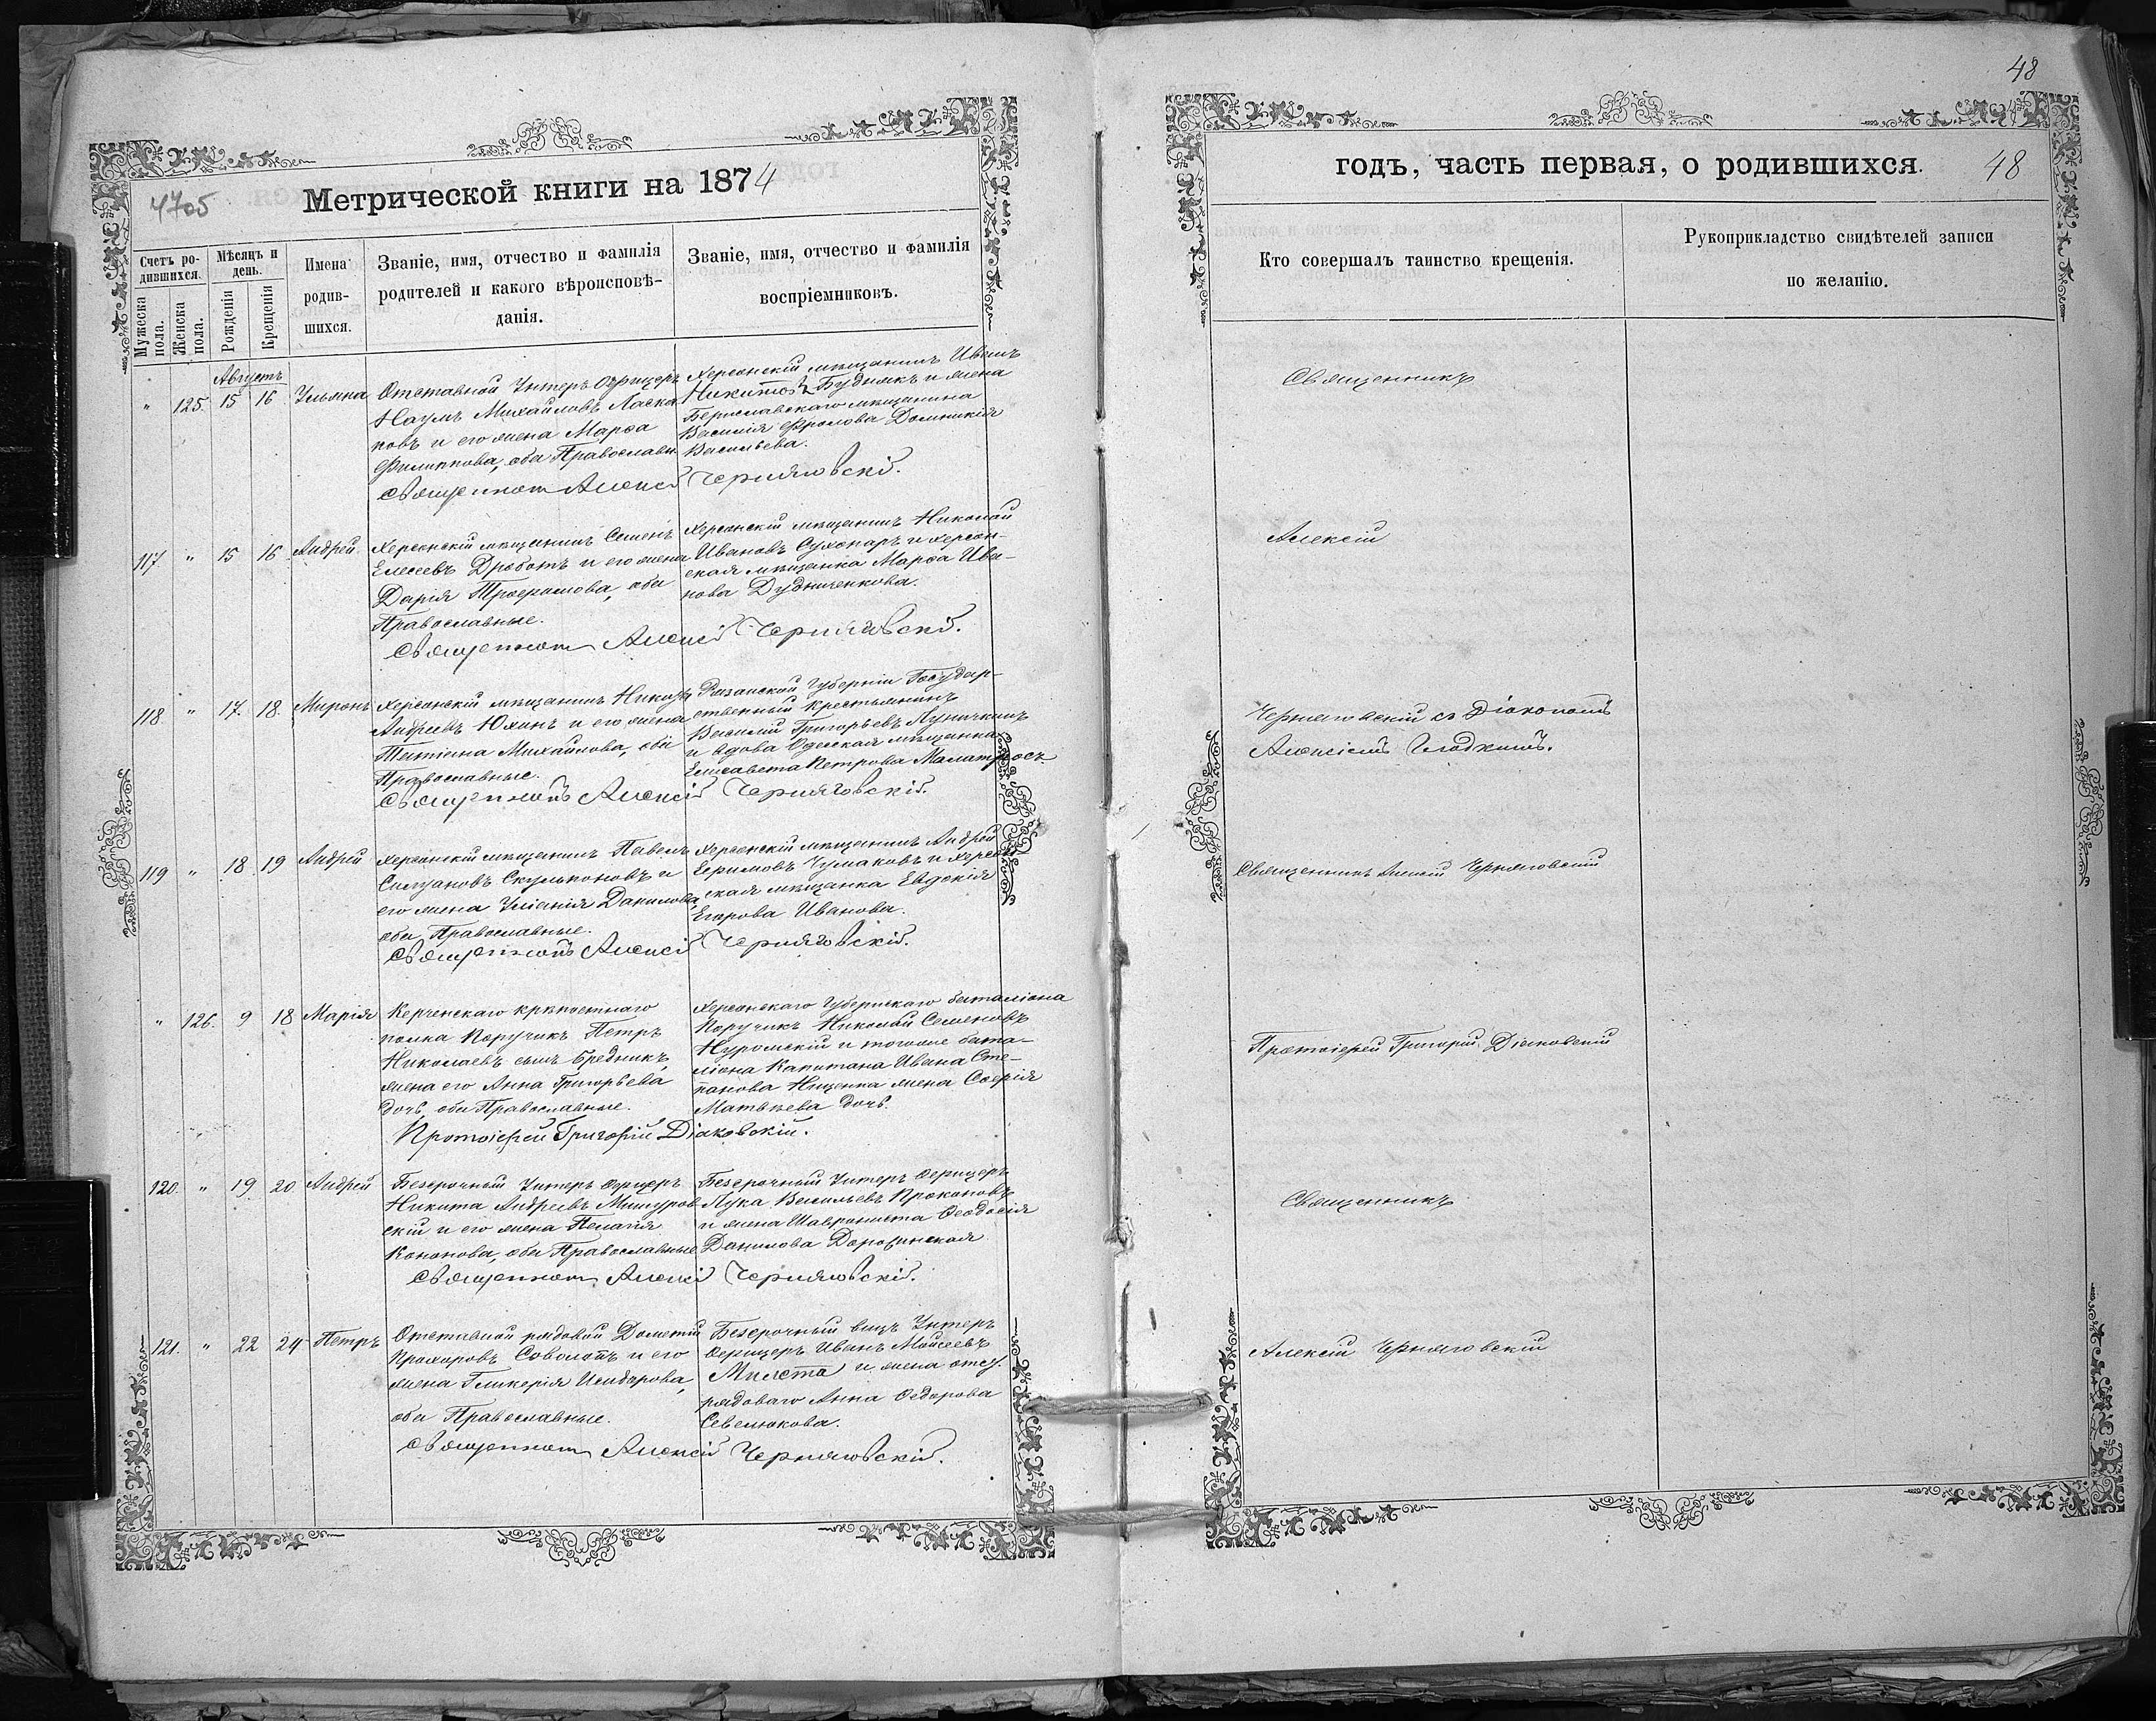 48
4705
Метрической книги на 1874
Счетъ ро-
дившихся.
Мѣсяцъ и
день.
Имена
родив-
шихся.
Мужеска
пола.
Женска
пола.
Рожденія
Крещенія
Званіе, имя, отчество и фамилія
родителей и какого вѣроисповѣ-
данія.
Званіе, имя, отчество и фамилія
воспріемниковъ.
Августъ
" 125. 15 16 Ульяна
Отставной Унтеръ Офицеръ
Наумъ Михайловъ Ласка
повъ и его жена Марѳа
Филиппова, оба Православн.
Херсонскій мѣщанинъ Иванъ
Никитовъ Будникъ и жена
Бериславскаго мѣщанина
Василія Фролова Домникія
Васильева.
Священникъ Алексій Черняговскій.
117 " 15 16 Андрей
Херсонскій мѣщанинъ Семенъ
Елесеевъ Дроботъ и его жена
Дарія Трофимова, оба
Православные.
Херсонскій мѣщанинъ Николай
Ивановъ Сухопаръ и херсон-
ская мѣщанка Марѳа Ива-
нова Дудниченкова.
Священникъ Алексій Черняговскій.
118 " 17. 18. Миронъ
Херсонскій мѣщанинъ Никита
Андреевъ Юханъ и его жена
Татіана Михайлова, оба
Православные.
Рязанской Губерніи Государ-
ственный крестьянинъ
Василій Григорьевъ Луничкинъ
и вдова Одесская мѣщанка
Елисавета Петрова Маматросъ
Священникъ Алексій Черняговскій.
119 " 18 19 Андрей
Херсонскій мѣщанинъ Павелъ
его жена Уліанія Данилова,
оба Православные.
Херсонскій мѣщанинъ Андрей
Ефимовъ Чумаковъ и херсон-
ская мѣщанка Евдокія
Егорова Иванова.
Священникъ Алексій Черняговскій.
" 126. 9 18 Марія
Керченскаго крѣпостнаго
полка Поручикъ Петръ
Николаевъ сынъ Бредникъ,
жена его Анна Григорьева
дочь, оба Православные.
Херсонскаго Губернскаго баталіона
Поручикъ Николай Семеновъ
Нуромскій и тогоже бата-
ліона Капитана Ивана Сте-
панова Ищенка жена Софія
Матвѣева дочь.
Протоіерей Григорій Діаковскій.
120. " 19 20 Андрей
Безсрочный Унтеръ Офицеръ
Никита Андреевъ Мишуров
скій и его жена Пелагія
Кононова, оба Православные
Безсрочный Унтеръ Офицеръ
Лука Васильевъ Прокоповъ
и жена Феодосія
Данилова
Священникъ Алексій Черняговскій.
121. " 22 24 Петръ
Отставной рядовой Дометій
Прохоровъ Соболотъ и его
жена Гликерія Исидорова,
оба Православные.
Безсрочный Унтеръ
Офицеръ Иванъ Моисеевъ
и жена
рядоваго Анна Федорова
Севелюкова.
Священникъ Алексій Черняговскій.
годъ, часть первая, о родившихся.
48
Кто совершалъ таинство крещенія.
Рукоприкладство свидѣтелей записи
по желанію.
Священникъ
Алексій
Черняговскій съ Діакономъ
Алексіемъ Гладкимъ.
Священникъ Алексій Черняговскій
Протоіерей Григорій Діаковскій
Священникъ
Алексій Черняговскій